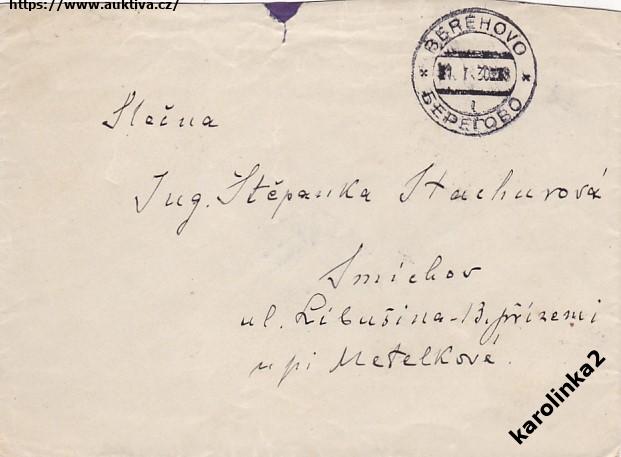 https://www.auktiva.cz/
BEREHOVO
БЕРЕГОВО
Slečna
Ing. Štěpanka Stachurová
Smíchov
ul. Libušina-13, přízemi
u pí Metelkové.
karolinka2